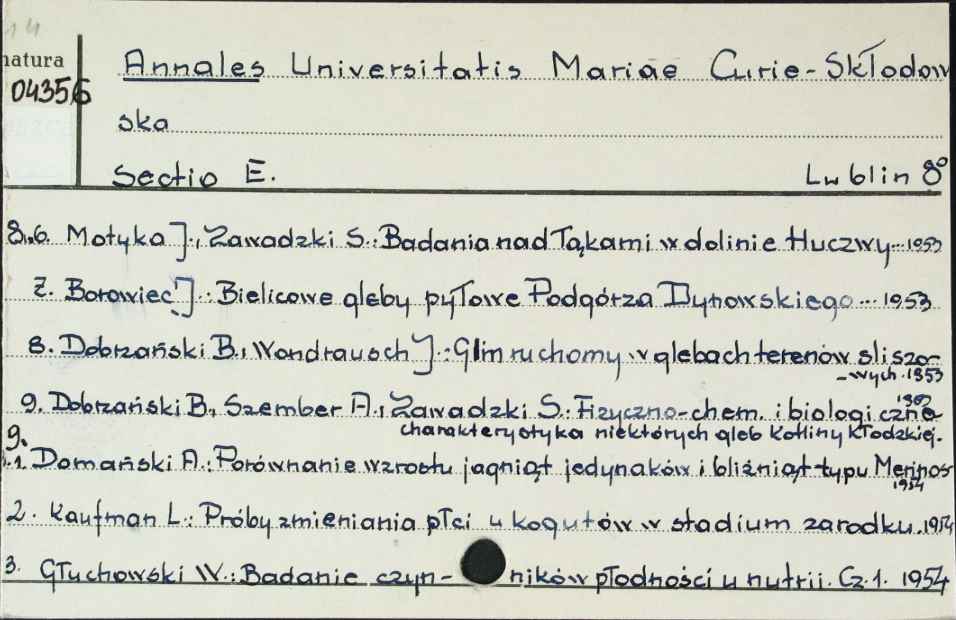 14
natura
04356
Annales Universitatis Mariae Curie-Skłodow
ska
Sectio E. Lublin 8°
8.6. Motyka J., Zawadzki S.: Badania nad łąkami w dolinie Huczwy...1953
7. Borowiec J.: Bielicowe gleby pyłowe Podgórza Dynowskiego...1953
8. Dobrzański B., Wondrausch J.: Glin ruchomy w glebach terenów
-wych.1953
9. Dobrzański B., Szember A., Zawadzki S.: Fizyczno-chem. i biologiczna
charakterystyka niektórych gleb Kotliny Kłodzkiej.
9.1. Domański A.: Porównanie wzrostu jagniąt jedynaków i bliźniąt typu Merinos
1954
2. Kaufman L.: Próby zmieniania płci u kogutów w stadium zarodku.1954
3. Głuchowski W.: Badanie czyn- ników płodności u nutrii. Cz.1. 1954